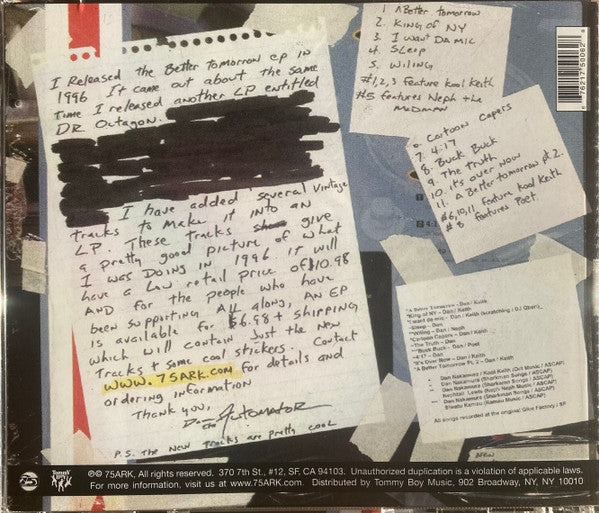 I Released the Better Tomorrow EP in
1996 It came out about the same
time I released another LP entitled
DR. Octagon.
I have added several vintage
tracks to make it into an
LP. These tracks give
a pretty good picture of what
I was DOING IN 1996 it will
have a low retail price of $10.98
AND for the people who have
been supporting All along, AN EP
is available for $6.98 + SHIPPING
which will contain just the new
Tracks + some cool stickers. Contact
WWW.75ARK.COM for details and
ordering information
THANK you,
Dan the AUTOMATOR
P.S. The NEW tracks are pretty cool
1 A Better tomorrow
2. KING of NY
3. I WANT DA MIC
4. SLeep
5. WILING
#1,2,3 Feature Kool Keith
#5 features Neph the
MADMAN
6. Cartoon Capers
7. 4:17
8. Buck Buck
9. The Truth
10. it's over Now
11. A Better tomorrow pt. 2.
#6,10,11 feature Kool Keith
#8 features Poet.
6 76217 50062 8
*A Better Tomorrow - Dan / Keith
*King of NY - Dan / Keith
*I want da mic - Dan / Keith (scratching / DJ Qbert)
*Sleep - Dan
**Wiling - Dan / Neph
*Cartoon Capers - Dan / Keith
*The Truth - Dan
***Buck Buck - Dan / Poet
*4:17 - Dan
*It's Over Now - Dan / Keith
*A Better Tomorrow Pt. 2 - Dan / Keith
Dan Nakamura / Kool Keith (Orit Music / ASCAP)
Dan Nakamura (Sharkman Songs / ASCAP)
Dan Nakamura (Sharkman Songs / ASCAP)
All songs recorded at the original Glue Factory / SF
Tommy Boy
℗© 75ARK, All rights reserved. 370 7th St., #12, SF, CA 94103. Unauthorized duplication is a violation of applicable laws.
For more information, visit us at www.75ARK.com. Distributed by Tommy Boy Music, 902 Broadway, NY, NY 10010